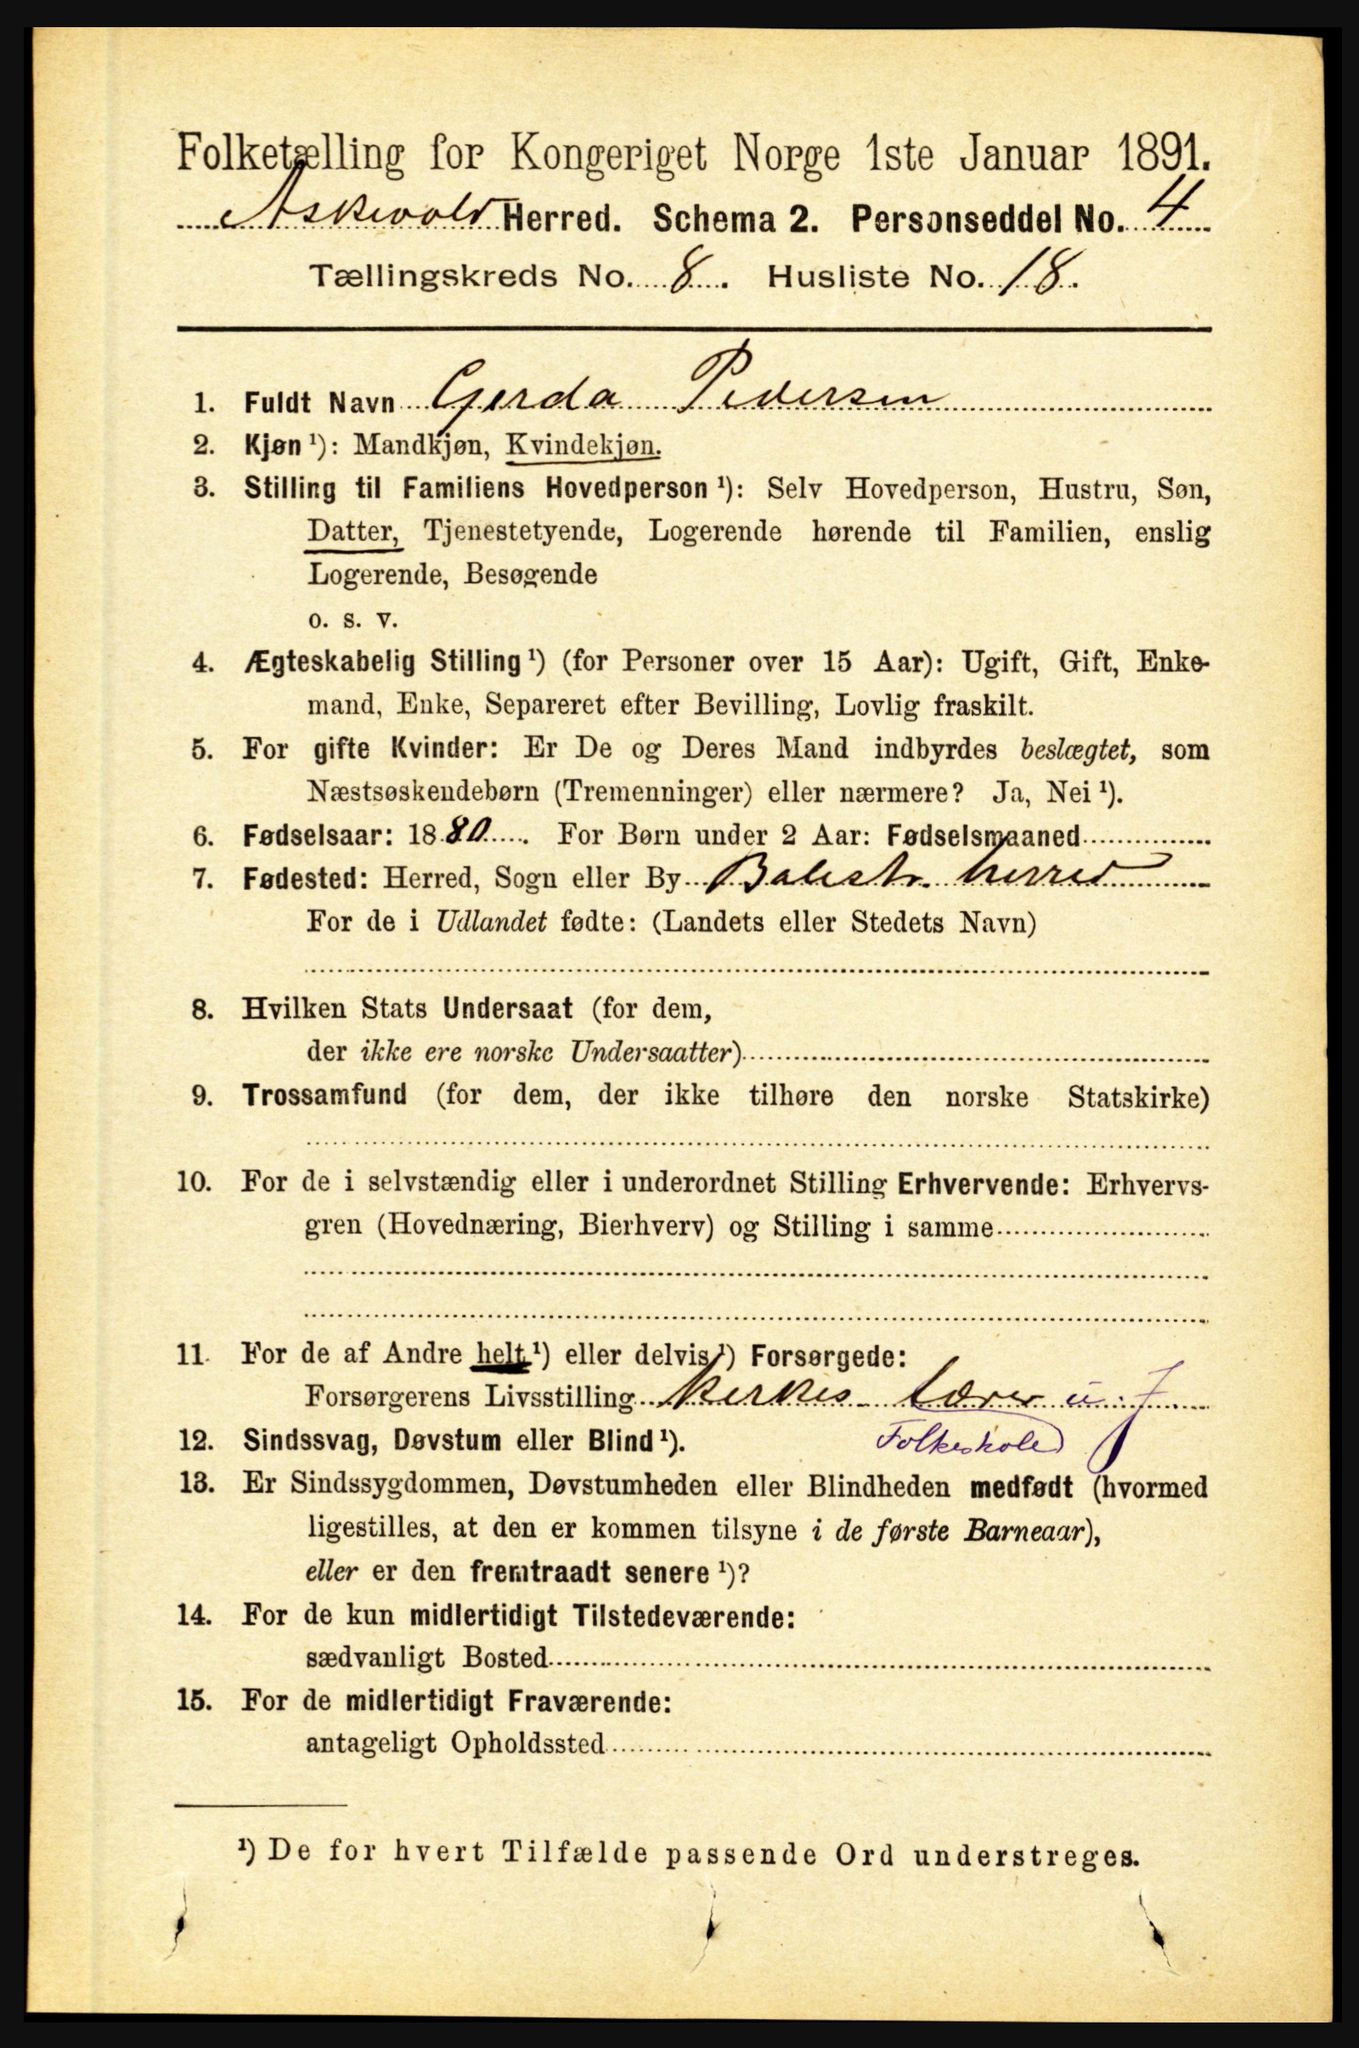 Folketælling for Kongeriget Norge 1ste Januar 1891.
Askevold Herred. Schema 2. Personseddel No. 4
Tællingskreds No. 8. Husliste No. 18.
1. Fuldt Navn Gerda Pedersen
2. Kjøn ¹): Mandkjøn, Kvindekjøn.
3. Stilling til Familiens Hovedperson ¹): Selv Hovedperson, Hustru, Søn,
Datter, Tjenestetyende, Logerende hørende til Familien, enslig
Logerende, Besøgende
o. s. v.
4. Ægteskabelig Stilling ¹) (for Personer over 15 Aar): Ugift, Gift, Enke-
mand, Enke, Separeret efter Bevilling, Lovlig fraskilt.
5. For gifte Kvinder: Er De og Deres Mand indbyrdes beslægtet, som
Næstsøskendebørn (Tremenninger) eller nærmere? Ja, Nei ¹).
6. Fødselsaar: 1880. For Børn under 2 Aar: Fødselsmaaned
7. Fødested: Herred, Sogn eller By Balestr. herred
For de i Udlandet fødte: (Landets eller Stedets Navn)
8. Hvilken Stats Undersaat (for dem,
der ikke ere norske Undersaatter)
9. Trossamfund (for dem, der ikke tilhøre den norske Statskirke)
10. For de i selvstændig eller i underordnet Stilling Erhvervende: Erhvervs-
gren (Hovednæring, Bierhverv) og Stilling i samme
11. For de af Andre helt ¹) eller delvis ¹) Forsørgede:
Forsørgerens Livsstilling Kirkes. lærer u. J
12. Sindssvag, Døvstum eller Blind ¹). Folkeskole
13. Er Sindssygdommen, Døvstumheden eller Blindheden medfødt (hvormed
ligestilles, at den er kommen tilsyne i de første Barneaar),
eller er den fremtraadt senere ¹)?
14. For de kun midlertidigt Tilstedeværende:
sædvanligt Bosted
15. For de midlertidigt Fraværende:
antageligt Opholdssted
¹) De for hvert Tilfælde passende Ord understreges.